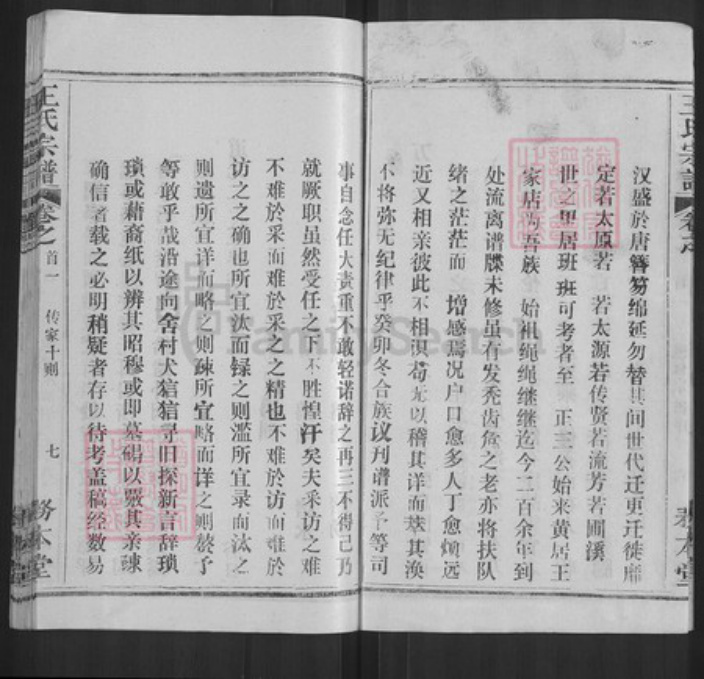 汉盛於唐簪笏绵延勿替其间世代迁更迁徙靡
定若太原若 若太源若传贤若流芳若圃溪
世之里居班班可考者至 正三公始来黄居王
家店为吾族 始祖绳绳继继迄今二百余年到
处流离谱牒未修虽有发秃齿危之老亦将扶队
绪之茫茫而 增感焉况户口愈多人丁愈烦远
近又相亲彼此不相识苟无以稽其详而萃其涣
不将弥无纪律乎癸卯冬合族议刊谱派予等司
事自念任大责重不敢轻诺辞之再三不得已乃
就厥职虽然受任之下不胜惶汗矣夫采访之难
不难於采而难於采之之精也不难於访而难於
访之之确也所宜汰而録之则滥所宜录而汰之
则遗所宜详而略之则疎所宜略而详之则赘予
等敢乎哉沿途向舍村犬狺狺寻旧探新言辞琐
琐或藉裔纸以辨其昭穆或即墓碣以覈其亲疎
确信者载之必明稍疑者存以待考盖稿经数易
王氏宗谱
卷之
首一 传家十则
七
务本堂
FamilySearch